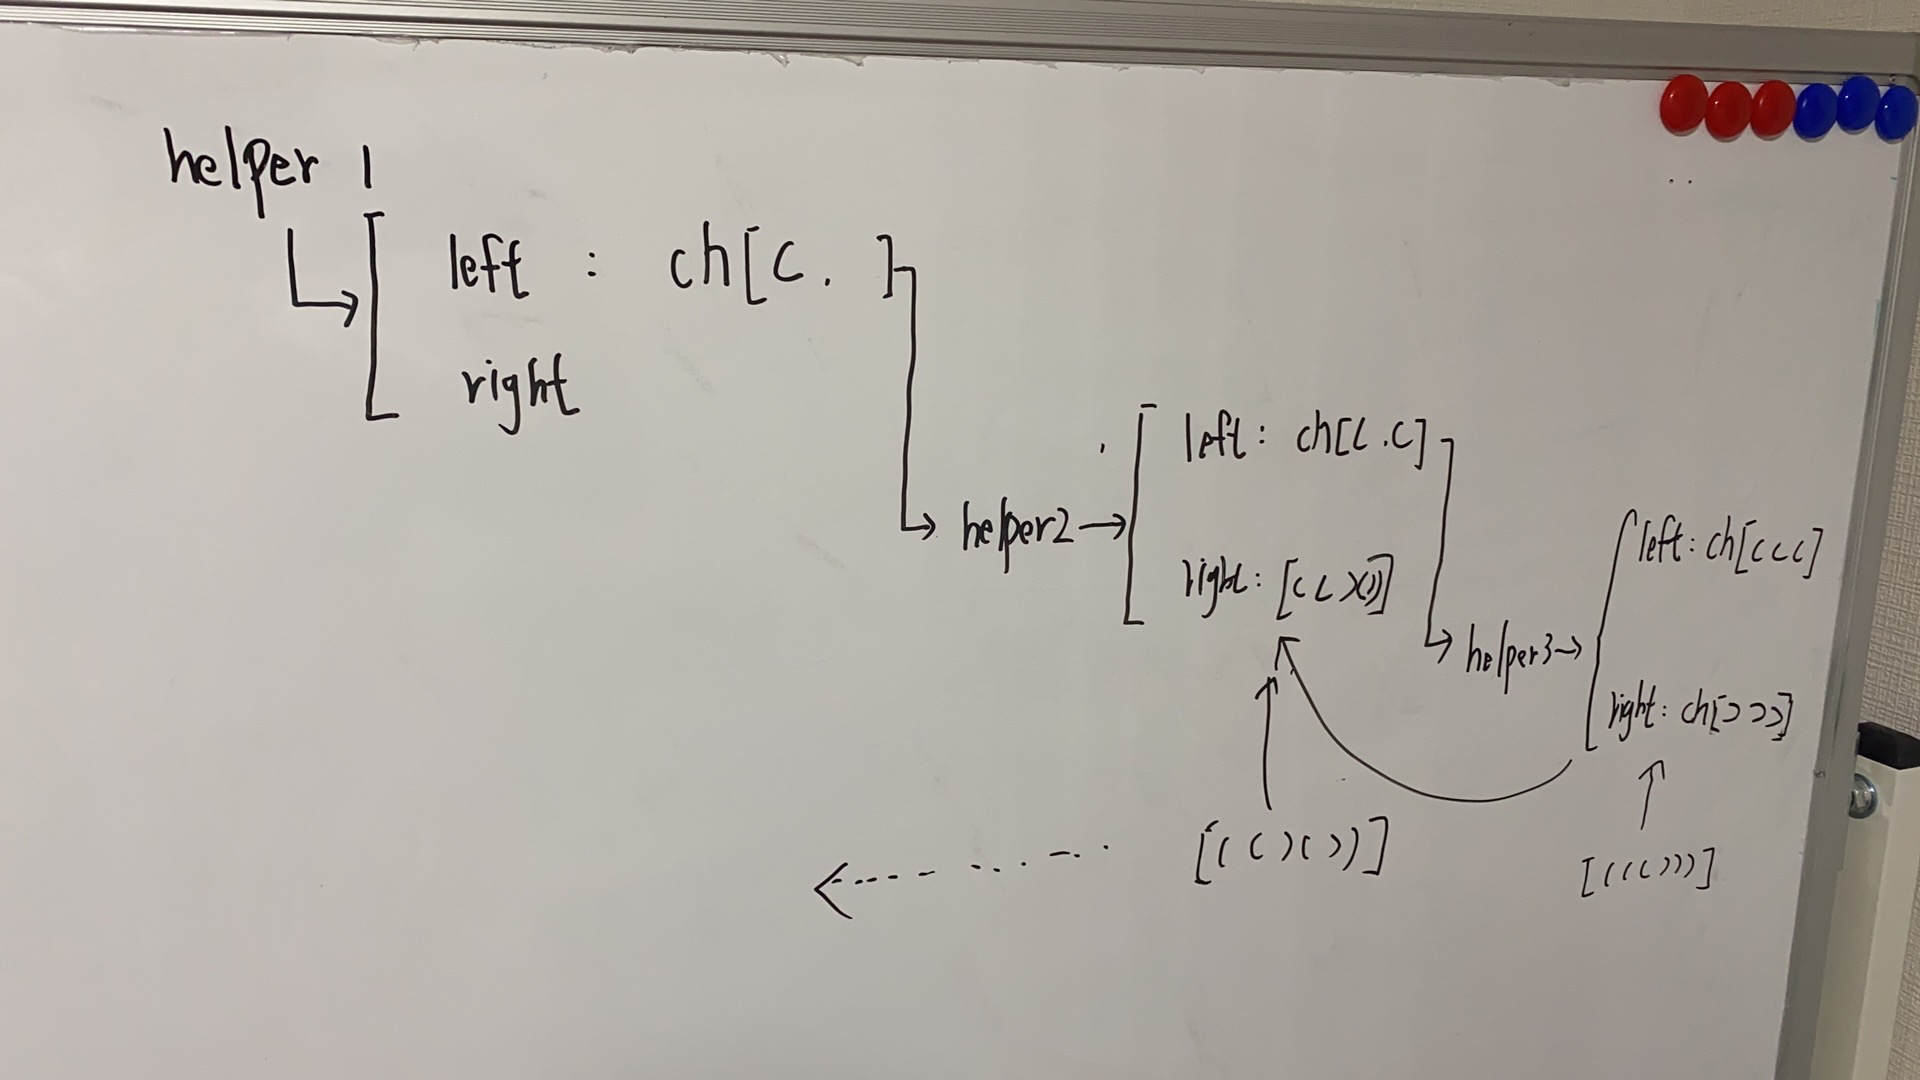 helper 1
left : ch[( . ]
right
helper2
left : ch[( . (]
right : [(()())]
helper3
left : ch[(((]
right : ch[)))]
[(()())]
[((()))]